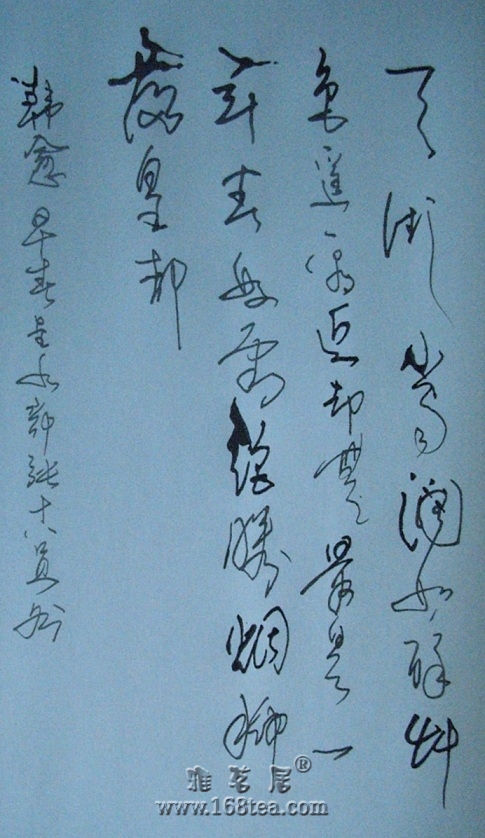 天街小雨潤如酥草
色遥看近却無最是一
年春好處絕勝烟柳
滿皇都
韓愈早春呈水部張十八員外
雅茗居®
www.168tea.com